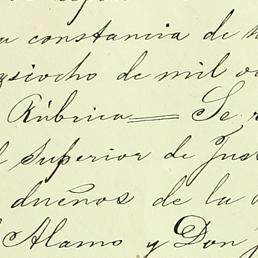 constancia de
siocho de mil
Rúbrica = Se
Superior de Jus
dueños de la
Alamo y Don